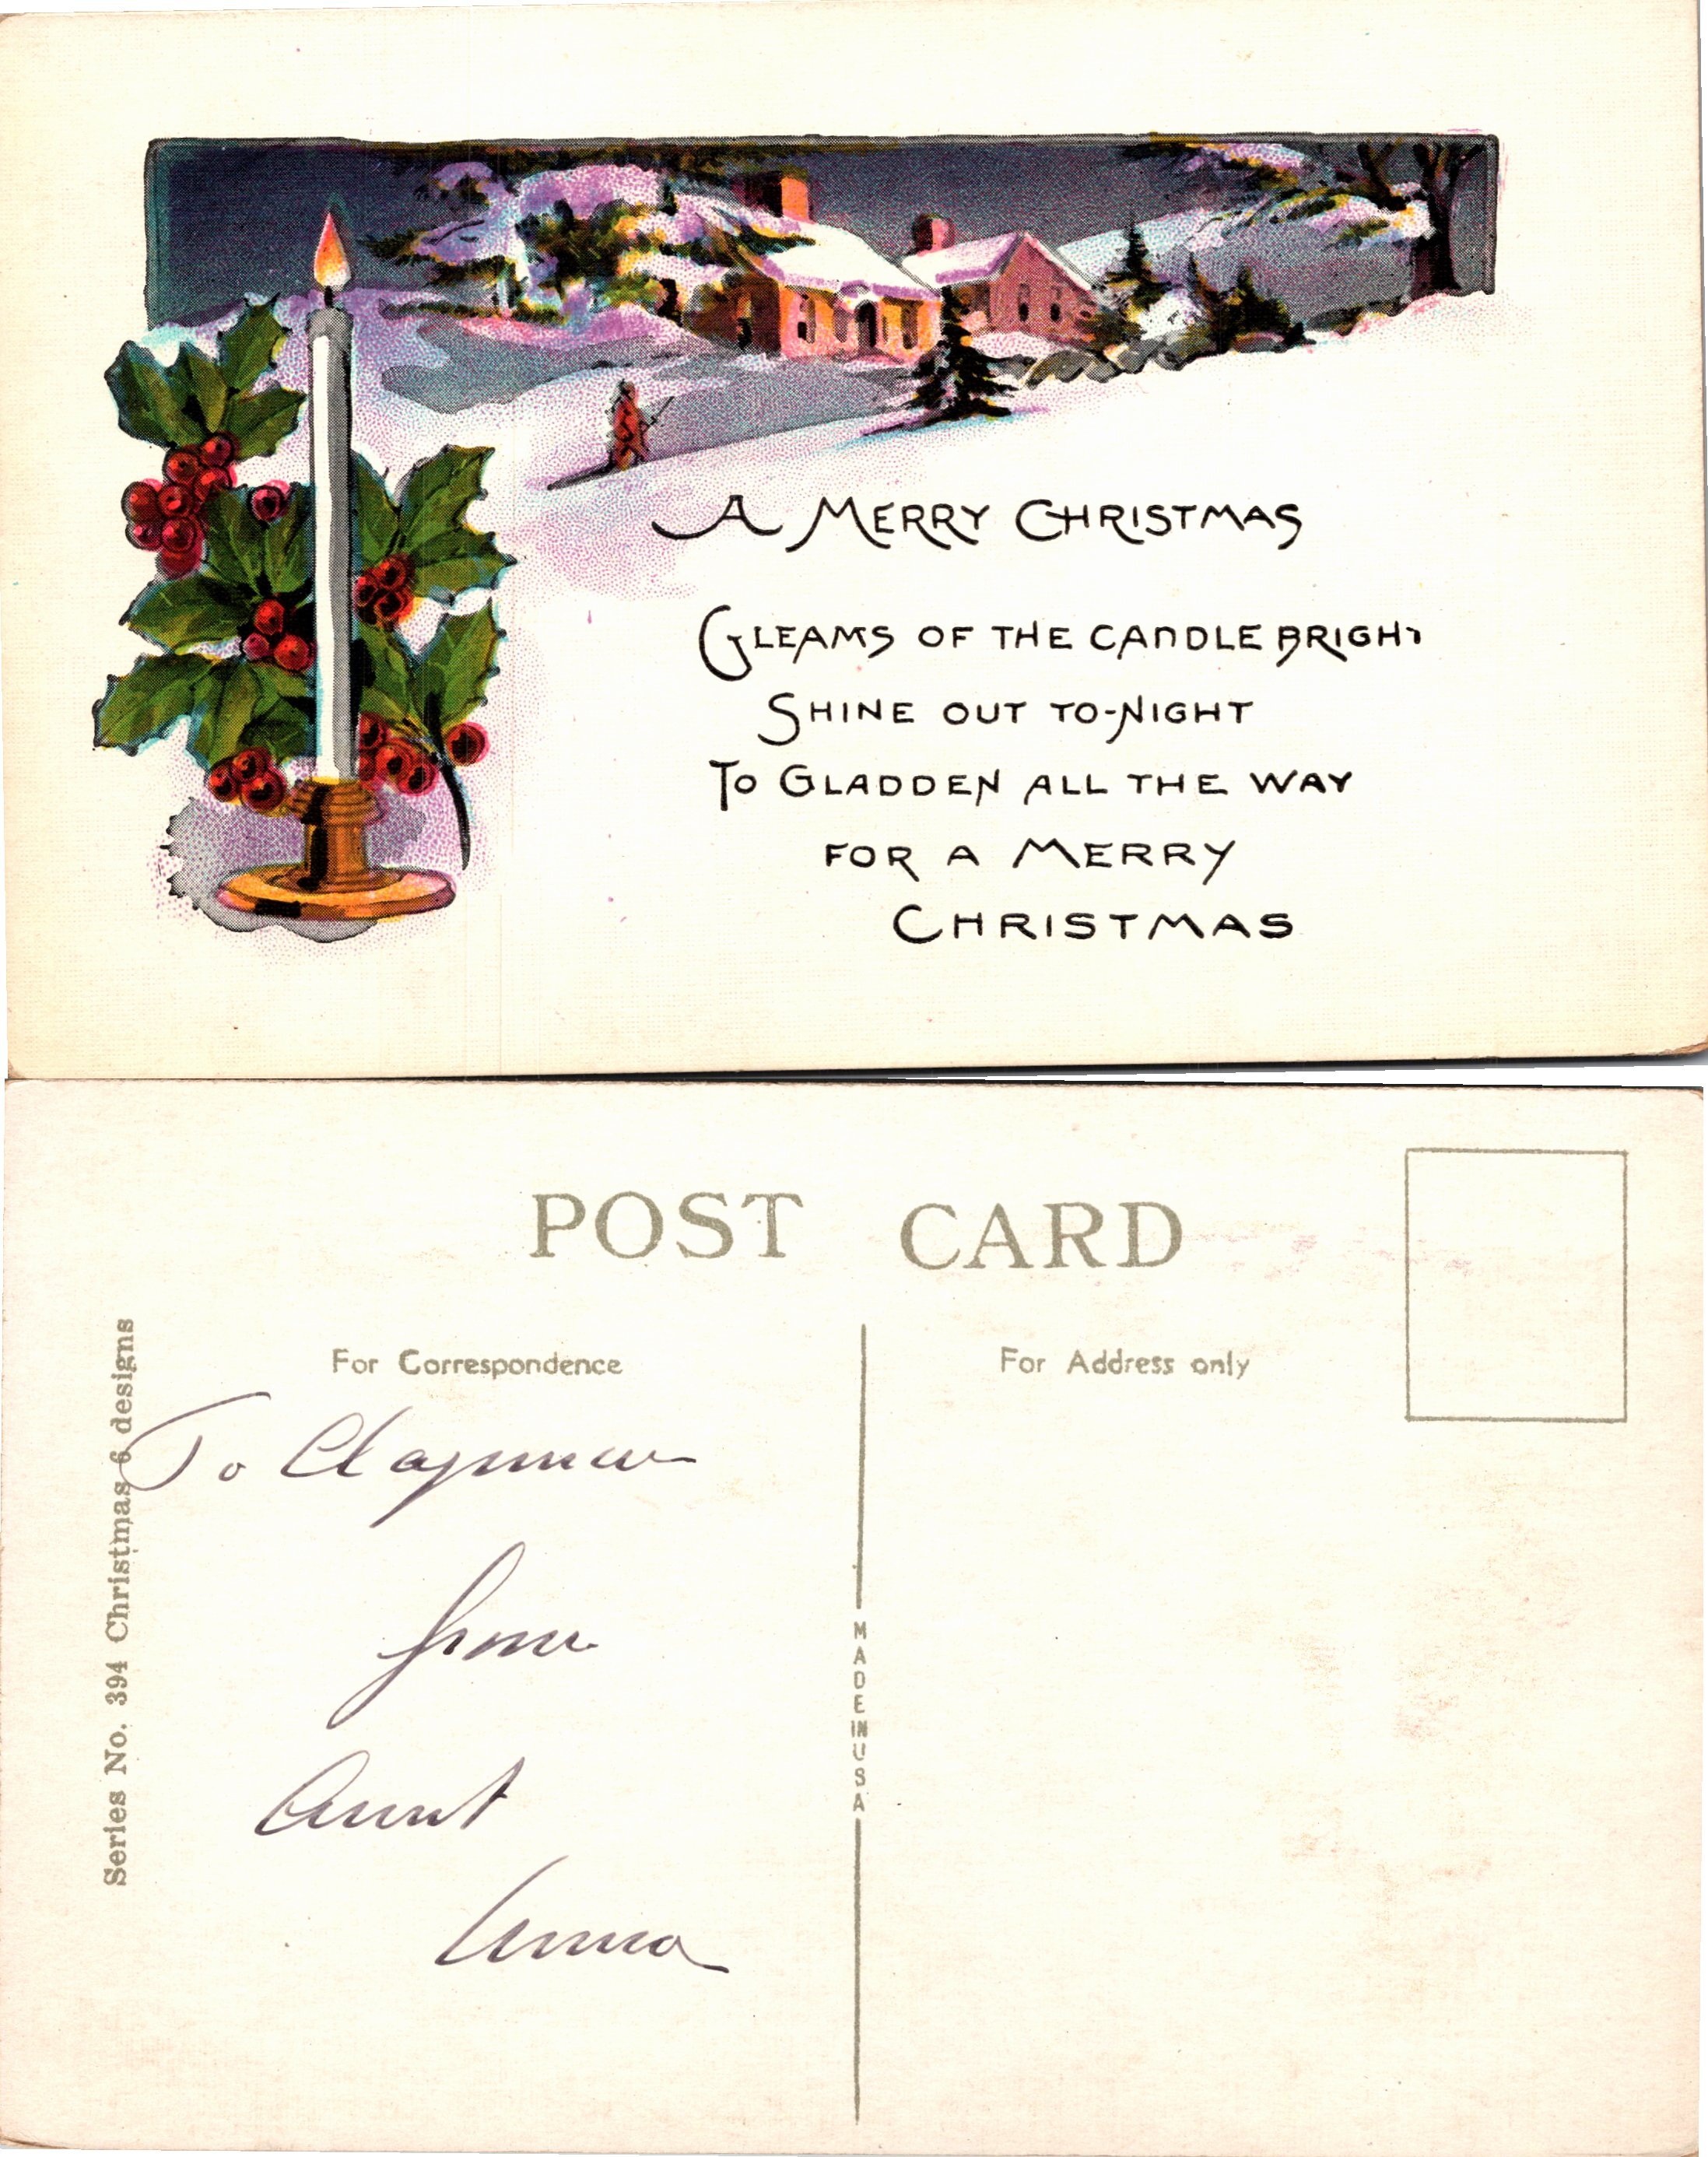 A MERRY CHRISTMAS
GLEAMS OF THE CANDLE BRIGHT
SHINE OUT TO-NIGHT
TO GLADDEN ALL THE WAY
FOR A MERRY
CHRISTMAS
POST CARD
For Correspondence
For Address only
Series No. 394 Christmas 6 designs
To Chapman
from
Aunt
Anna
MADE IN USA